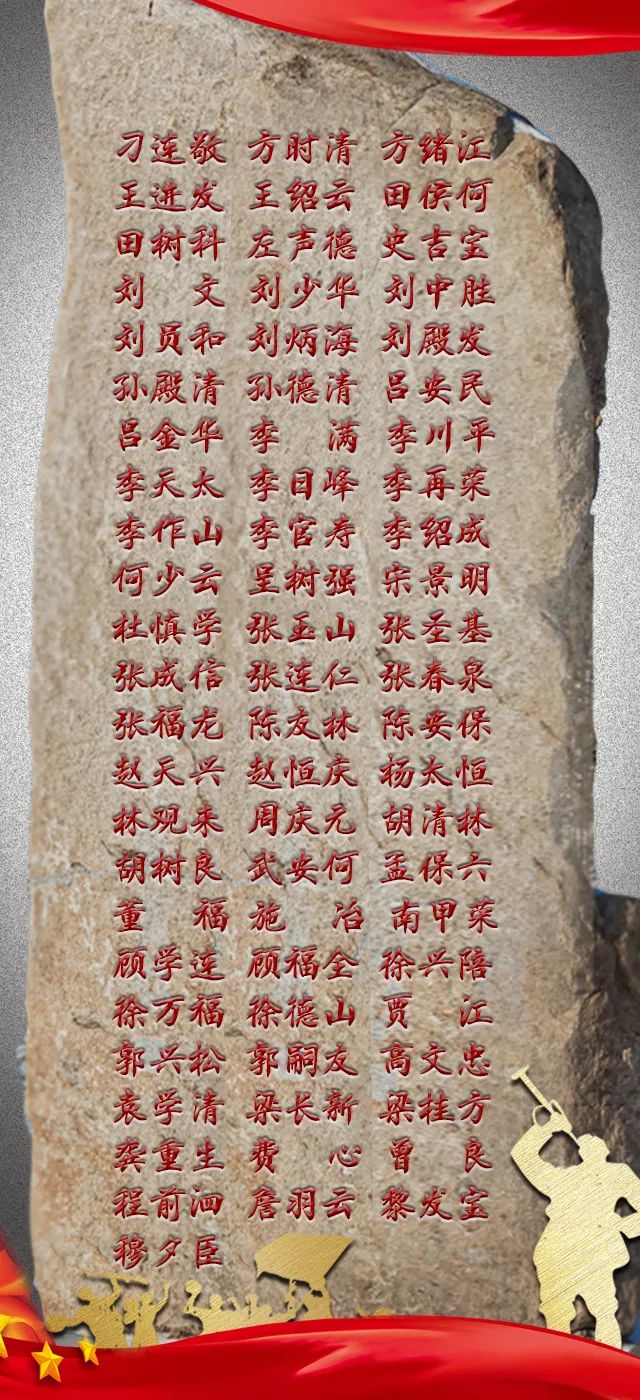 刁连敬 方时清 方绪江
王进发 王绍云 田侯何
田树科 左声德 史吉宝
刘文 刘少华 刘中胜
刘员和 刘炳海 刘殿发
孙殿清 孙德清 吕安民
吕金华 李满 李川平
李天太 李日峰 李再荣
李作山 李官寿 李绍成
何少云 呈树强 宋景明
杜慎学 张玉山 张圣基
张成信 张连仁 张春泉
张福龙 陈友林 陈安保
赵天兴 赵恒庆 杨太恒
林观来 周庆元 胡清林
胡树良 武安何 孟保六
董福 施冶 南甲荣
顾学连 顾福全 徐兴陪
徐万福 徐德山 贾江
郭兴松 郭嗣友 高文忠
袁学清 梁长新 梁桂方
龚重生 费心 曾良
程前泗 詹羽云 黎发宝
穆夕臣